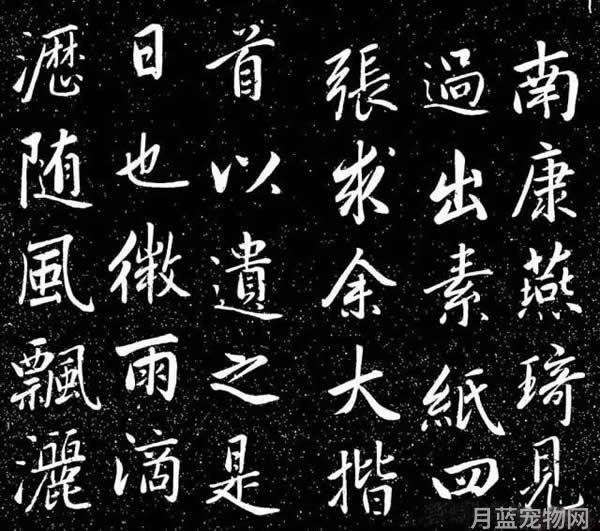 南康燕琦見
過出素紙四
張求余大揩
首以遺之是
日也微雨滴
瀝随風飄灑
月蓝宠物网